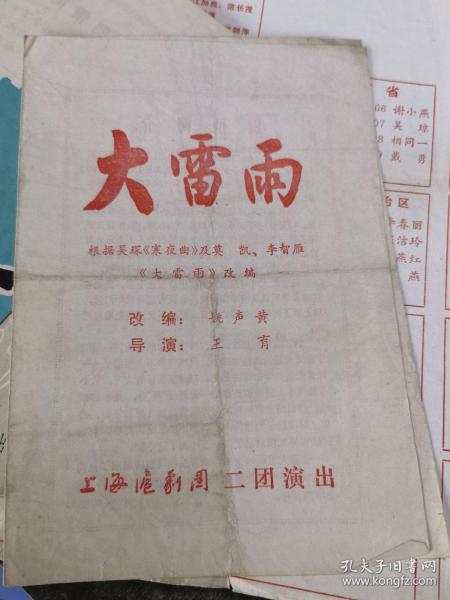 大雷雨
根据吴琛《寒夜曲》及莫 凯、李智雁
《大雷雨》改编
改编: 姚声黄
导演: 王 育
上海沪剧团 二团演出
省
06 谢小燕
07 吴 琼
8 相同一
戴 勇
治区
李春丽
洁玲
燕红
燕
孔夫子旧书网
www.kongfz.com